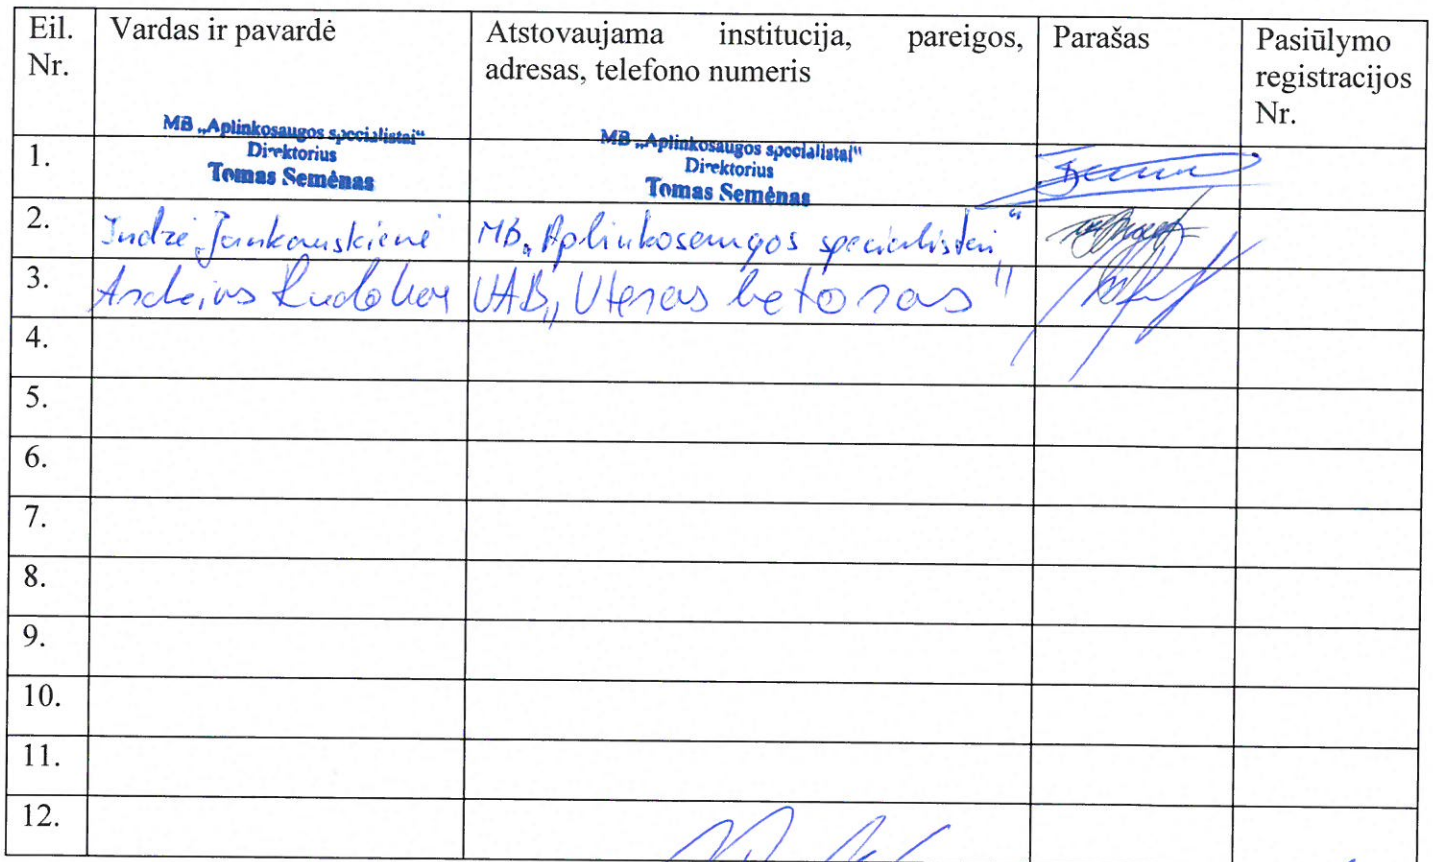 Eil. Nr.
Vardas ir pavardė
Atstovaujama institucija, pareigos, adresas, telefono numeris
Parašas
Pasiūlymo registracijos Nr.
1.
MB „Aplinkosaugos specialistai“
Direktorius
Tomas Semėnas
MB „Aplinkosaugos specialistai“
Direktorius
Tomas Semėnas
2.
Indrė Jankauskienė
MB „Aplinkosaugos specialistai“
3.
UAB „Utenos betonas“
4.
5.
6.
7.
8.
9.
10.
11.
12.